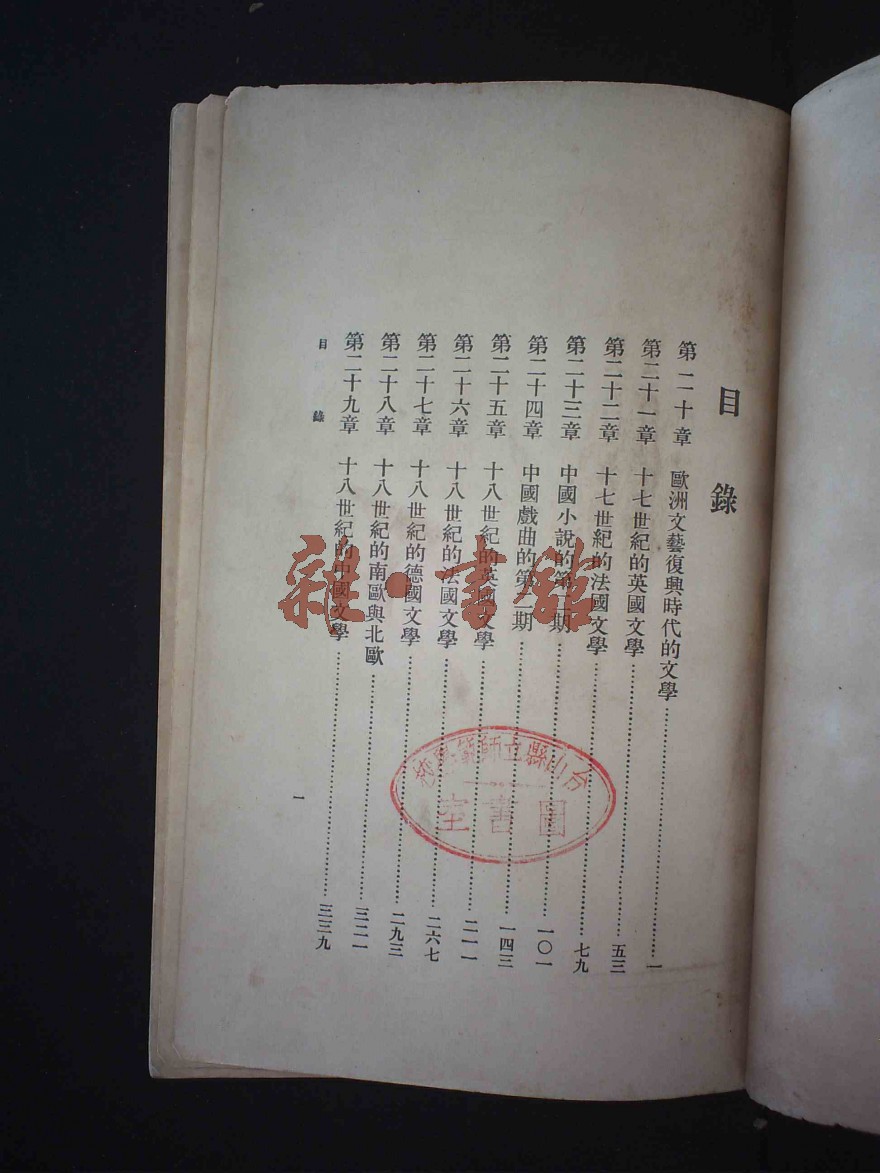 目錄
第二十章 歐洲文藝復興時代的文學……一
第二十一章 十七世紀的英國文學……五三
第二十二章 十七世紀的法國文學……七九
第二十三章 中國小說的第二期……一〇一
第二十四章 中國戲曲的第二期……一四三
第二十五章 十八世紀的英國文學……二一一
第二十六章 十八世紀的法國文學……二六七
第二十七章 十八世紀的德國文學……二九三
第二十八章 十八世紀的南歐與北歐……三二一
第二十九章 十八世紀的中國文學……三三九
目錄
一
雜·書館
台山縣立師範學校
圖書室